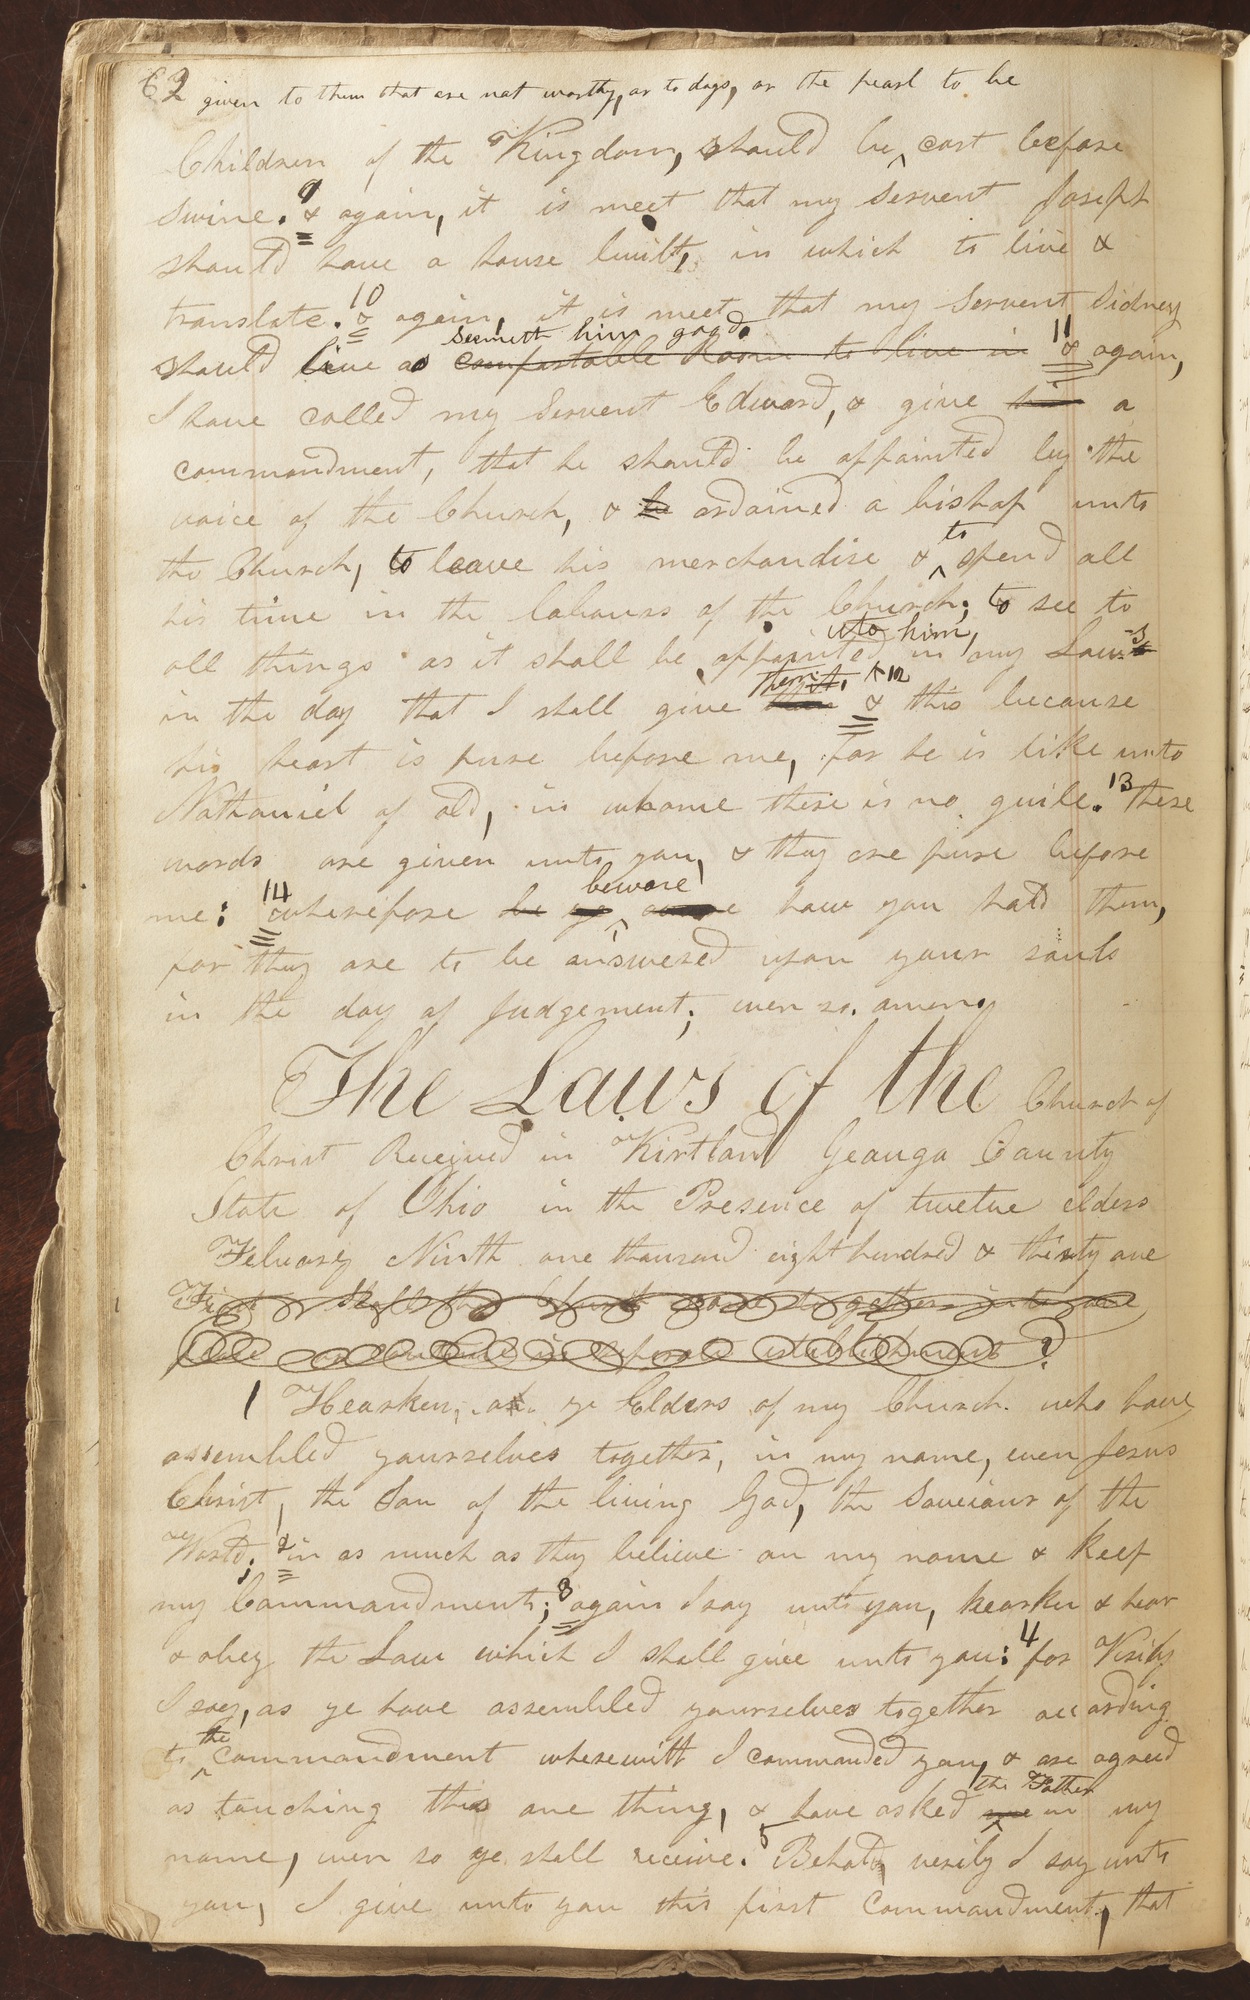 62 given to them that are not worthy, or to dogs, or the pearl to be
Children of the Kingdom, should be cast before
swine. 9 & again, it is meet that my Servent Joseph
should have a house built, in which to live &
translate. 10 & again, it is meet that my Servent Sidney
seemeth him good.
should live as comfortable Room to live in 11 & again,
I have called my Servent Edward, & give a
commandment, that he should be appointed by the
voice of the Church, & ordained a bishop unto
to
the Church, to leave his merchandise & spend all
his time in the labours of the Church; to see to
unto him,
all things as it shall be appointed in my Laws
them. 12
in the day that I shall give & this because
his heart is pure before me, for he is like unto
Nathaniel of old, in whome there is no guile. 13 these
words are given unto you, & they are pure before
beware
me: 14 wherefore be ye how you hold them,
for they are to be answered upon your souls
in the day of Judgement; even so. amen.
The Laws of the Church of
Christ Received in Kirtland Geauga County
State of Ohio in the Presence of twelve elders
Febuary Ninth one thousand eight hundred & thirty one
First Shall the Church come together into one
place or continue in seperate establishments ?
1 Hearken, oh ye Elders of my Church. who have
assembled yourselves together, in my name, even Jesus
Christ, the Son of the living God, the Saveiour of the
World; 2 in as much as they believe on my name & keep
my Commandments; 3 again I say unto you, hearken & hear
& obey the Law which I shall give unto you: 4 for Verily
I say, as ye have assembled yourselves together according
the
to commandment wherewith I commanded you, & are agreed
the Father
as touching this one thing, & have asked me in my
name, even so ye shall receive. 5 Behold, verily I say unto
you, I give unto you this first Commandment, that